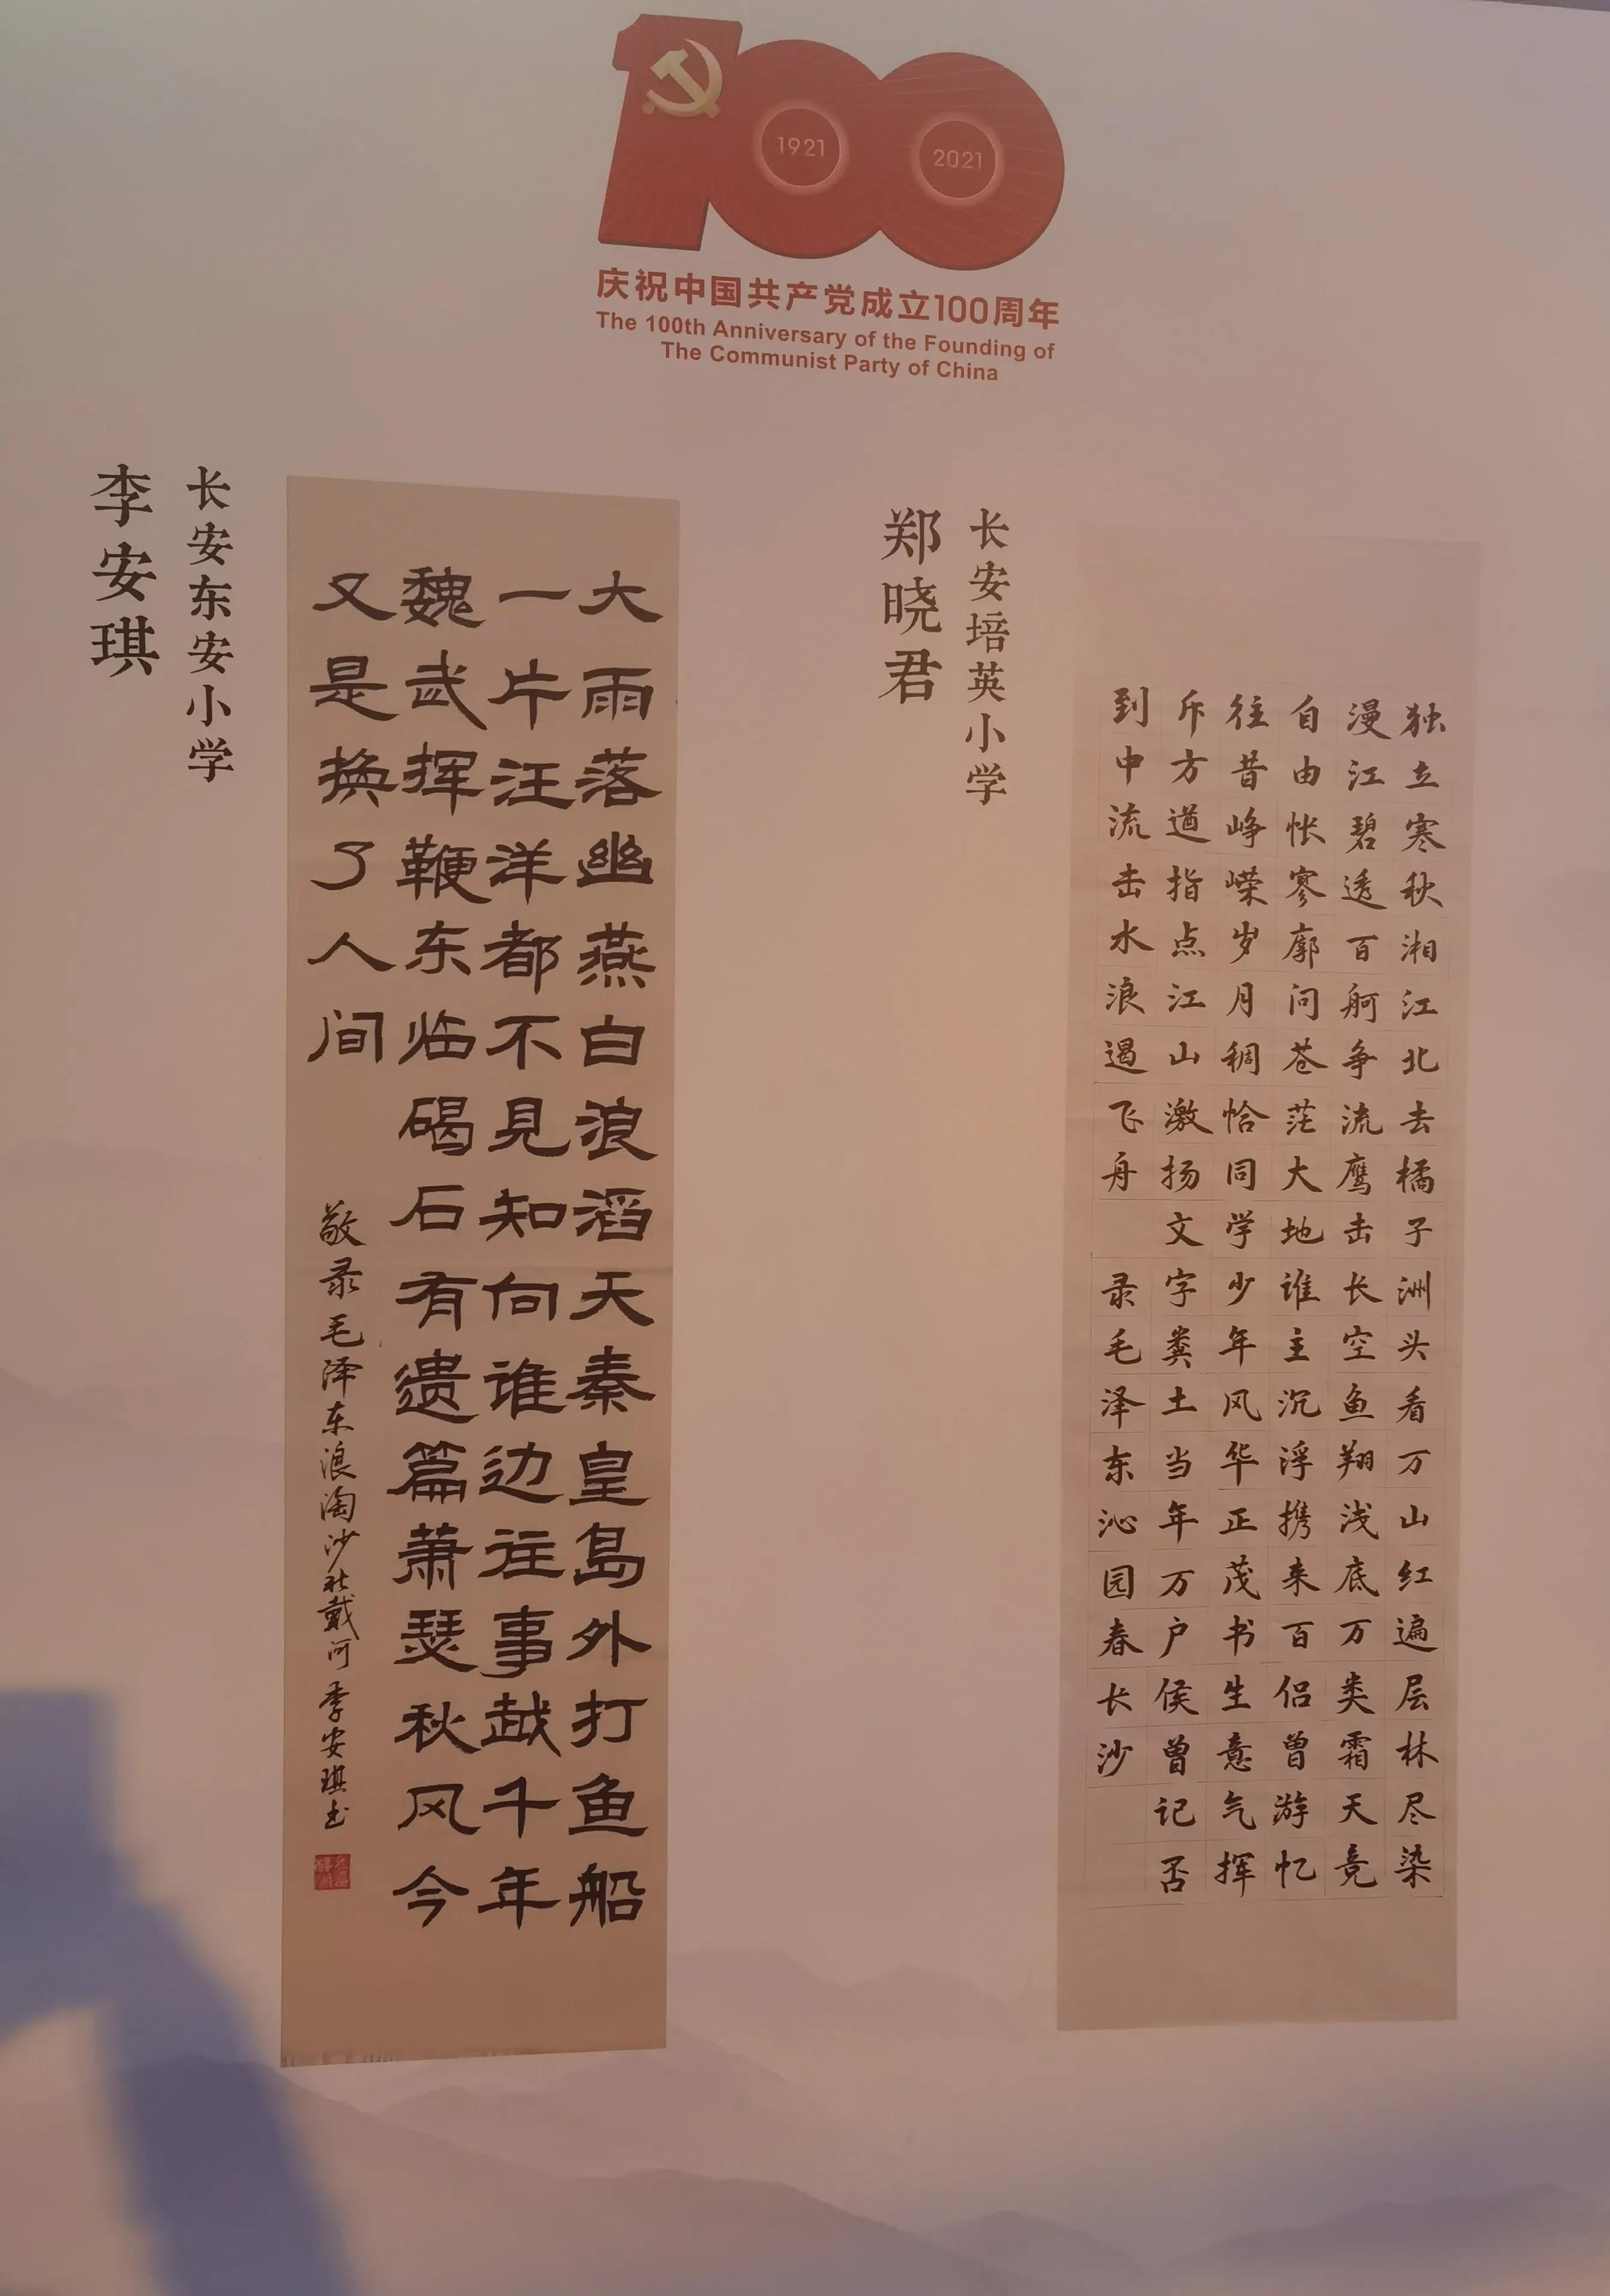 1921
2021
庆祝中国共产党成立100周年
The 100th Anniversary of the Founding of
The Communist Party of China
长安东安小学
李安琪
大雨落幽燕白浪滔天秦皇島外打鱼船
一片汪洋都不見知向谁边往事越千年
魏武挥鞭东临碣石有遗篇萧瑟秋风今
又是换了人间
敬录毛泽东浪淘沙北戴河 李安琪书
长安培英小学
郑晓君
独立寒秋湘江北去橘子洲头看万山红遍层林尽染
漫江碧透百舸争流鹰击长空鱼翔浅底万类霜天竞
自由怅寥廓问苍茫大地谁主沉浮携来百侣曾游忆
往昔峥嵘岁月稠恰同学少年风华正茂书生意气挥
斥方遒指点江山激扬文字粪土当年万户侯曾记否
到中流击水浪遏飞舟 录毛泽东沁园春长沙